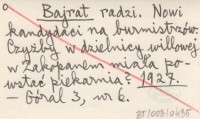 Bajrat radzi. Nowi
kandydaci na burmistrzów.
Czyżby w dzielnicy willowej
w Zakopanem miała po-
wstać piekarnia? 1927.
— Góral 3, nr 6.
BJ/003/0435